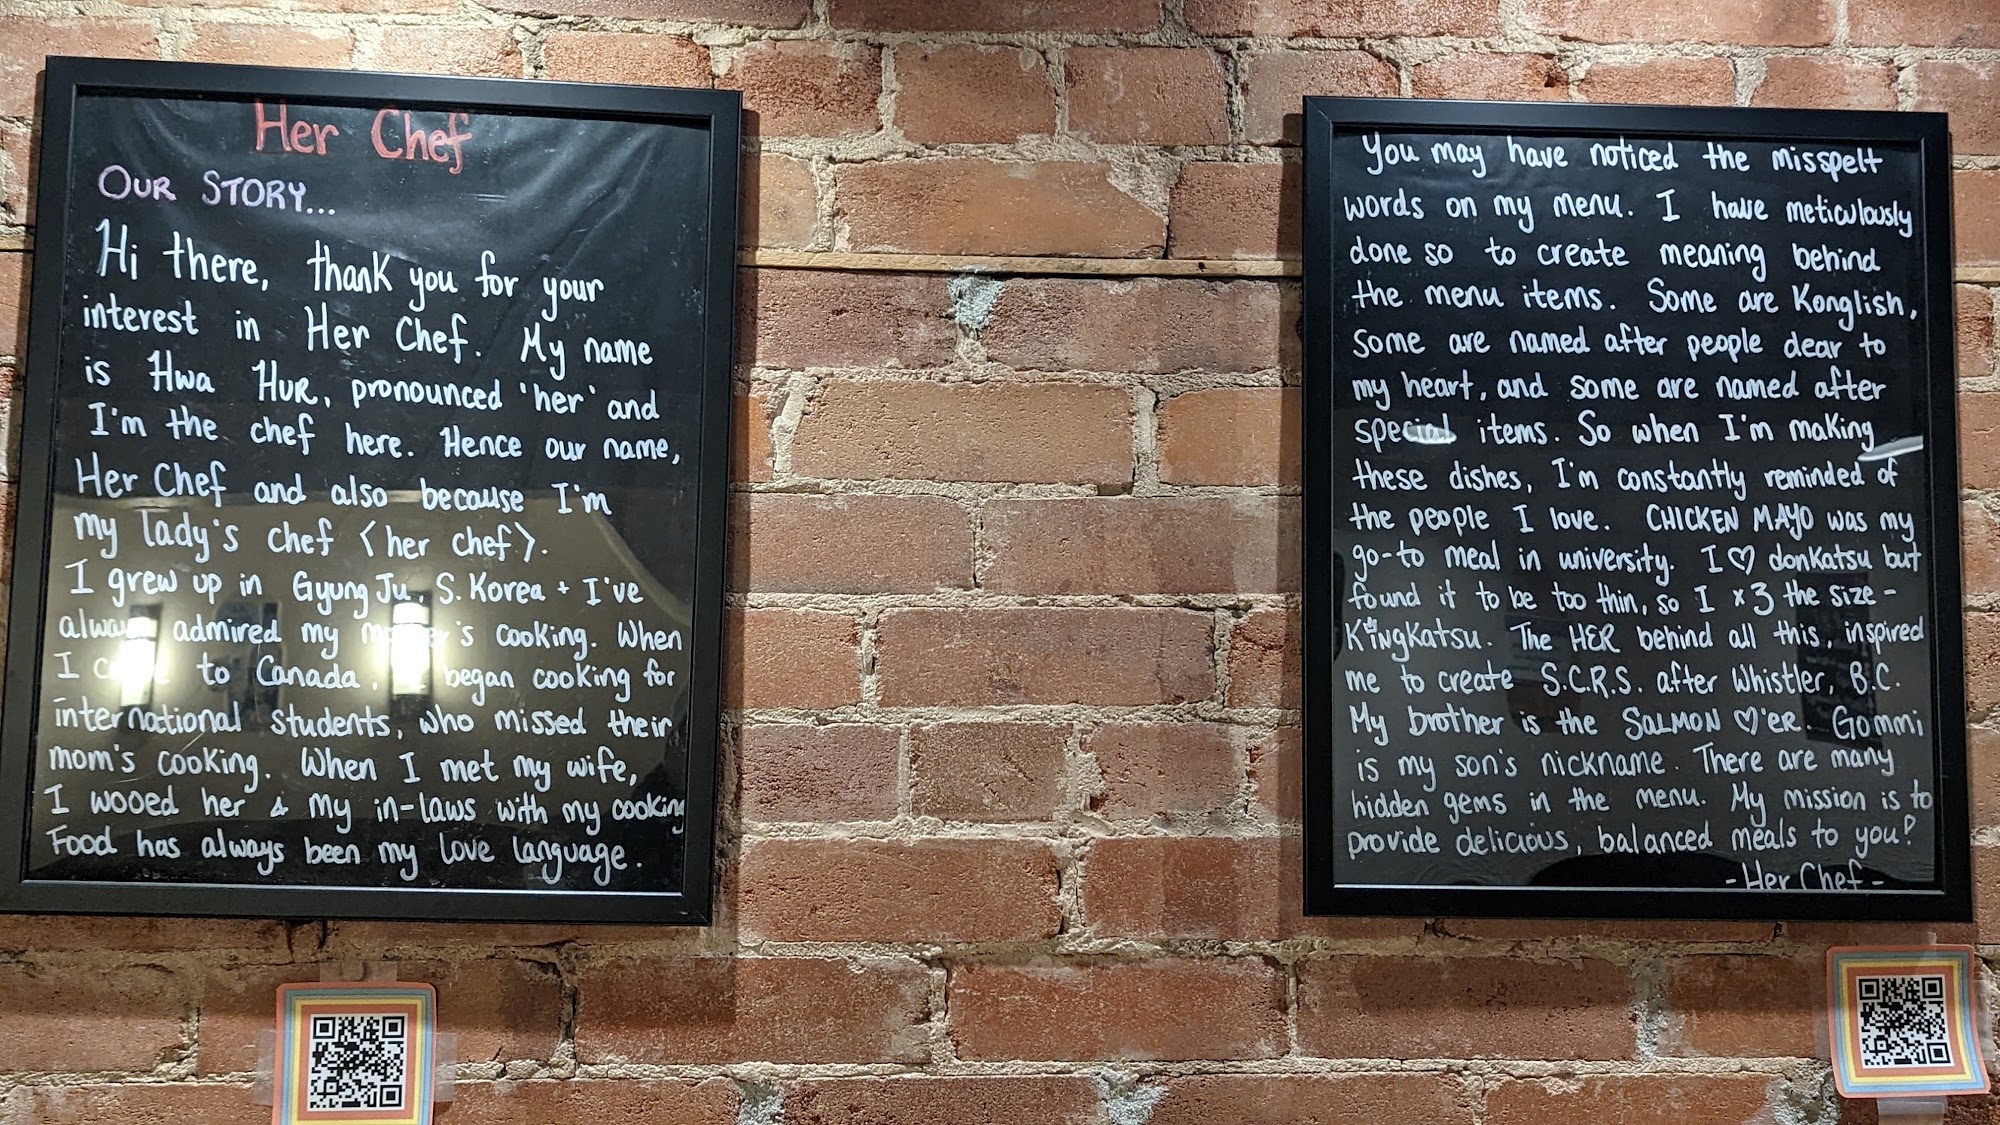 Her Chef
OUR STORY...
Hi there, thank you for your
interest in Her Chef. My name
is Hwa Hur, pronounced 'her' and
I'm the chef here. Hence our name,
Her Chef and also because I'm
my lady's chef <her chef>.
I grew up in GyungJu, S.Korea + I've
always admired my mother's cooking. When
I came to Canada, I began cooking for
international students, who missed their
mom's cooking. When I met my wife,
I wooed her & my in-laws with my cooking
Food has always been my love language.
You may have noticed the misspelt
words on my menu. I have meticulously
done so to create meaning behind
the menu items. Some are Konglish,
some are named after people dear to
my heart, and some are named after
special items. So when I'm making
these dishes, I'm constantly reminded of
the people I love. CHICKEN MAYO was my
go-to meal in university. I ♡ donkatsu but
found it to be too thin, so I x3 the size -
KingKatsu. The HER behind all this, inspired
me to create S.C.R.S. after Whistler, B.C.
My brother is the SALMON ♡'ER. Gommi
is my son's nickname. There are many
hidden gems in the menu. My mission is to
provide delicious, balanced meals to you!
- Her Chef -